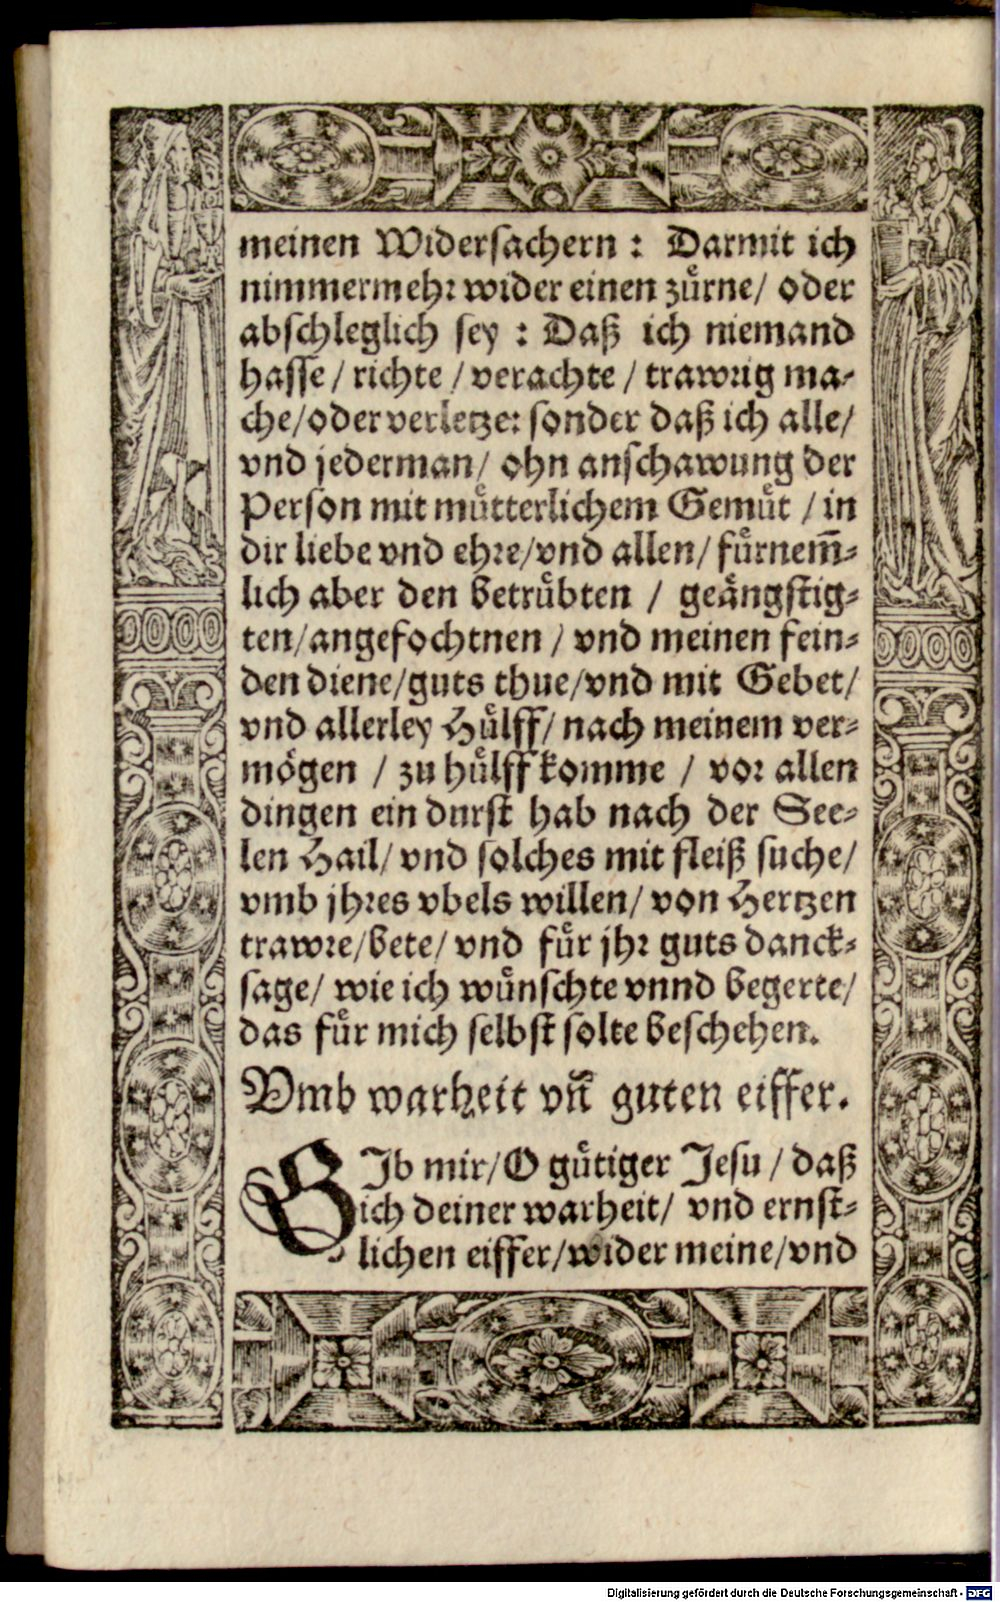 meinen Widersachern : Darmit ich
nimmermehr wider einen zuͤrne/ oder
abschleglich sey : Daß ich niemand
hasse / richte / verachte / trawrig ma-
che/oder verletze: sonder daß ich alle/
vnd jederman/ ohn anschawung der
Person mit muͤtterlichem Gemuͤt / in
dir liebe vnd ehre/vnd allen/ fuͤrnem̃-
lich aber den betruͤbten / geaͤngstig-
ten/angefochtnen / vnd meinen fein-
den diene/guts thue/vnd mit Gebet/
vnd allerley Huͤlff/ nach meinem ver-
moͤgen / zu huͤlff komme / vor allen
dingen ein durst hab nach der See-
len Hail/ vnd solches mit fleiß suche/
vmb jhres vbels willen/ von Hertzen
trawre/bete/ vnd fuͤr jhr guts danck-
sage/ wie ich wuͤnschte vnnd begerte/
das fuͤr mich selbst solte beschehen.
Vmb warheit vñ guten eiffer.
GIb mir/ O guͤtiger Jesu / daß
ich deiner warheit/ vnd ernst-
lichen eiffer/wider meine/vnd
Digitalisierung gefördert durch die Deutsche Forschungsgemeinschaft - DFG